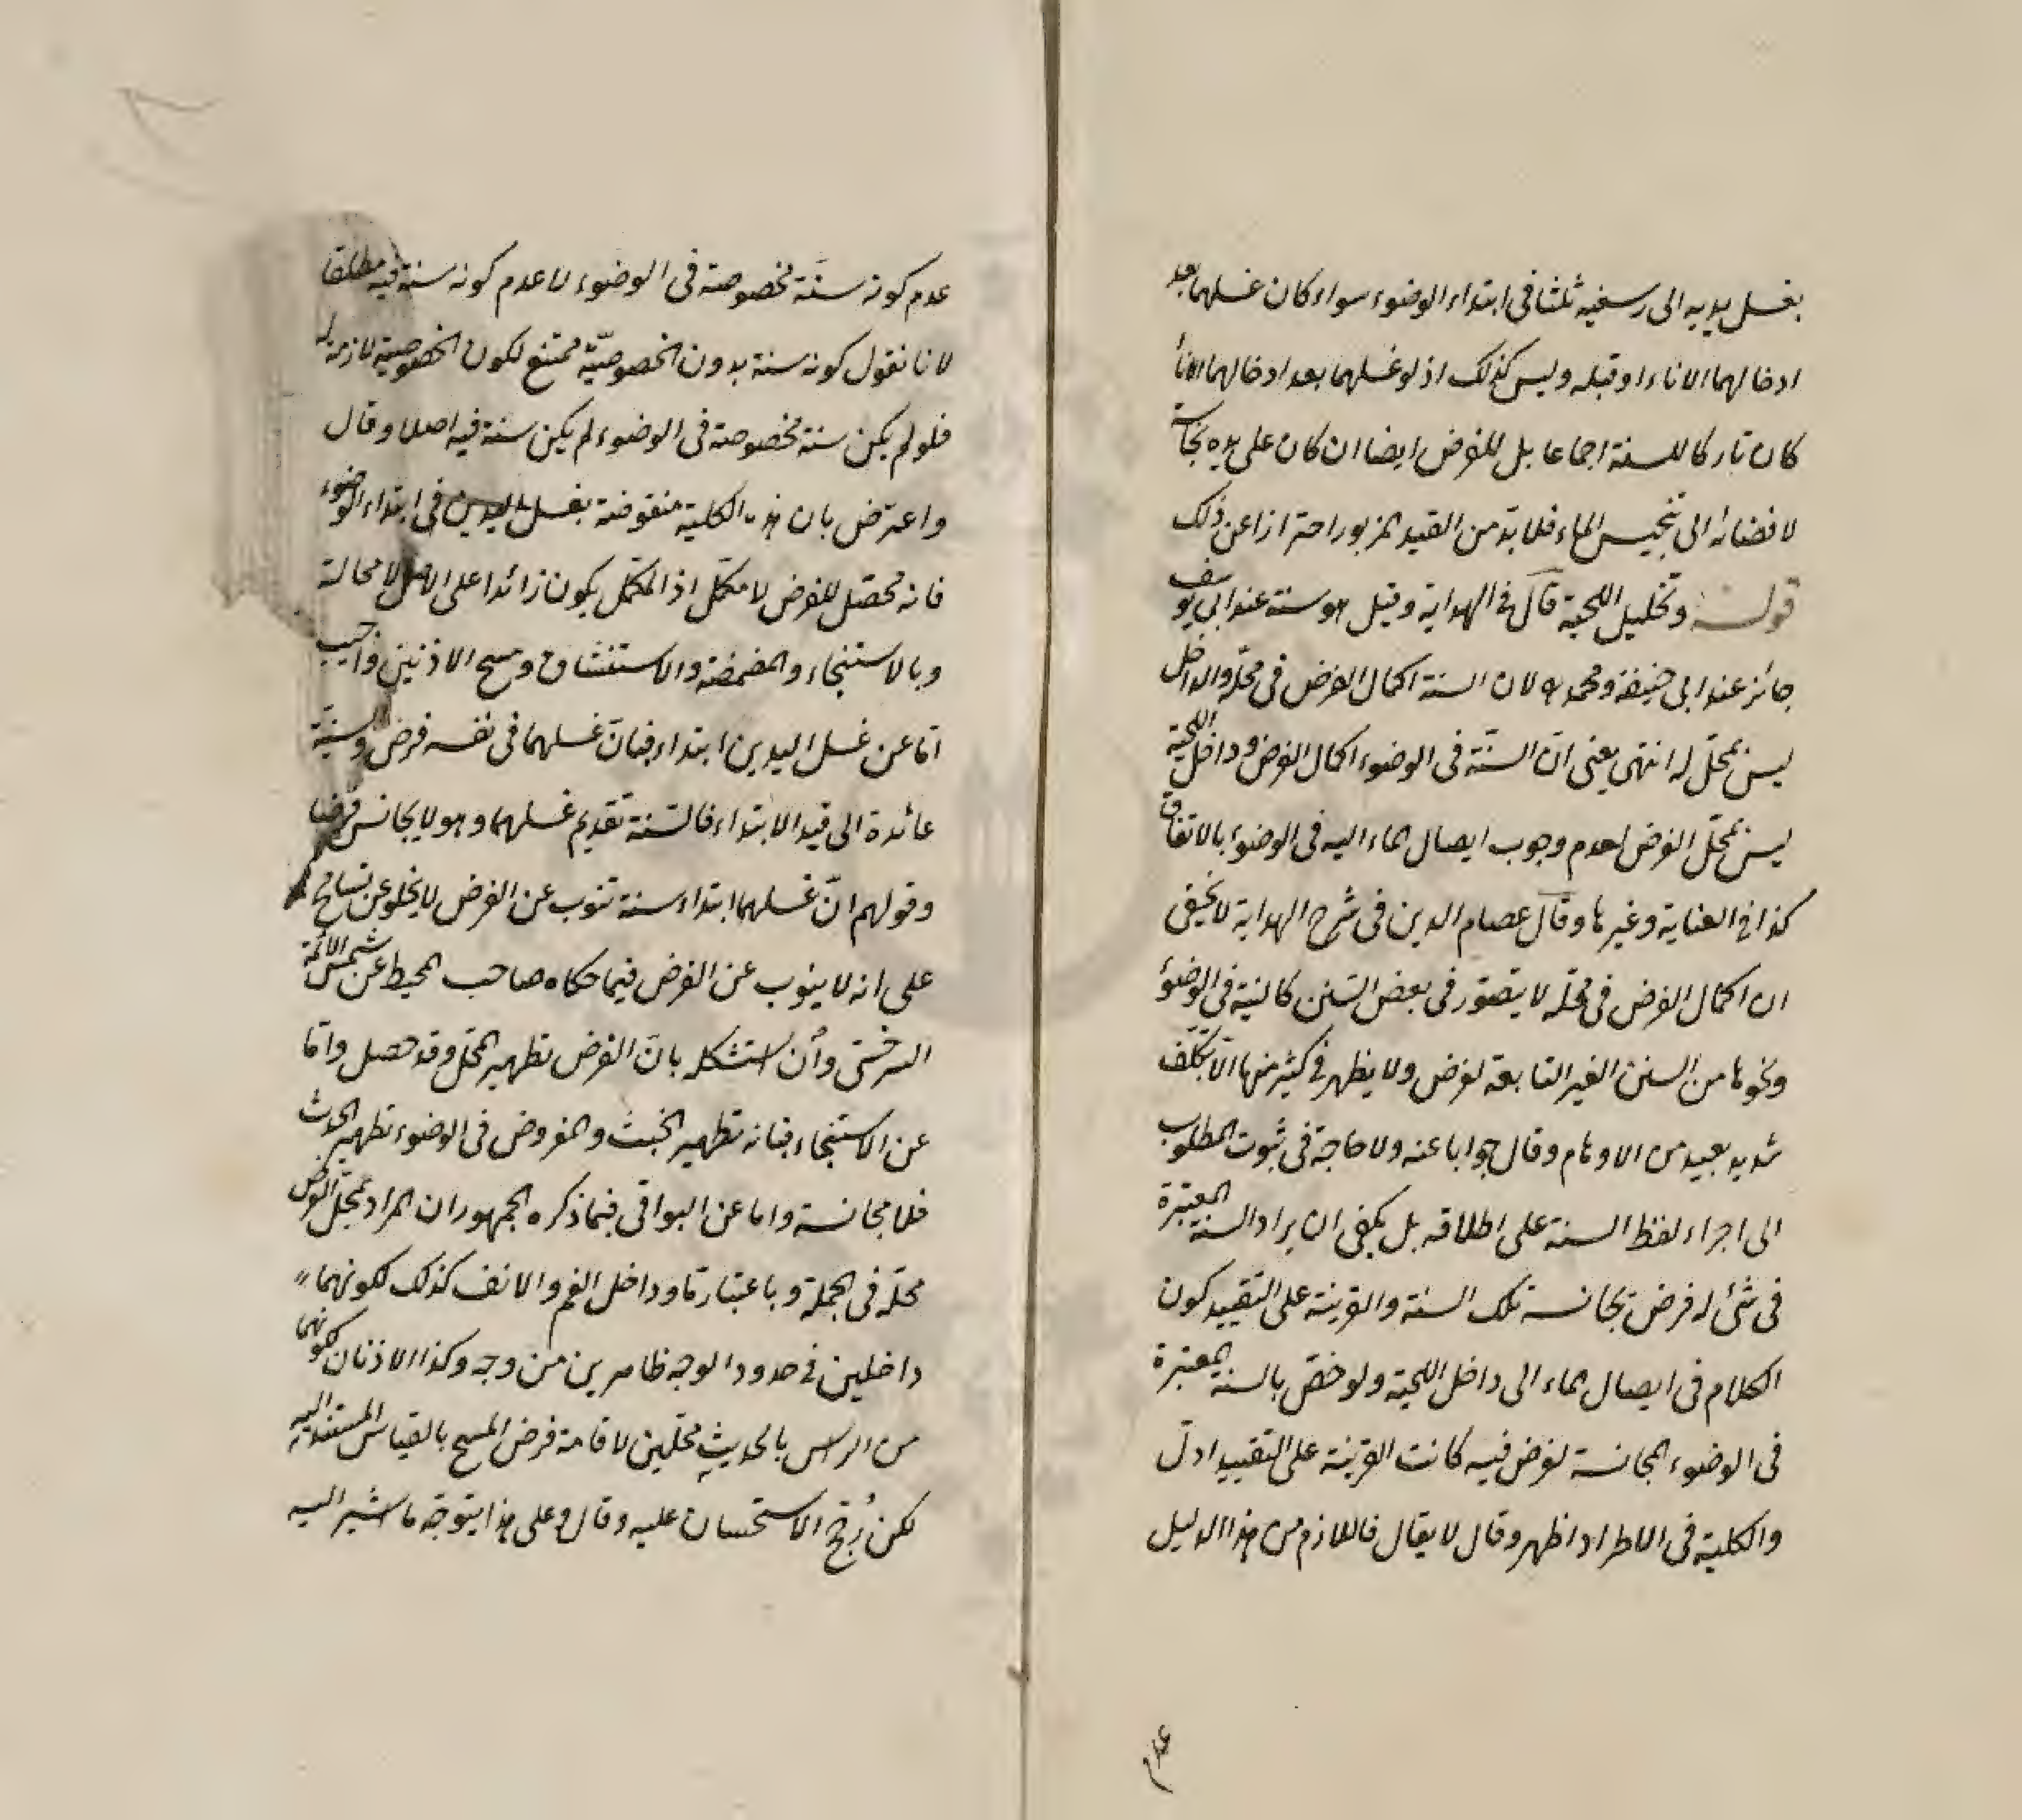 بغسل يديه الى رسغيه ثلثا فى ابتداء الوضوء سواء كان غسلهما بعد
ادخالهما الاناء او قبله وليس كذلك اذ لو غسلهما بعد ادخالهما الاناء
كان تاركا للسنة اجماعا بل للفرض ايضا ان كان على يده نجاسة
لافضائه الى تنجيس الماء فلا بد من القيد المزبور احترازا عن ذلك
قوله وتخليل اللحية قال فى الهداية وقيل هو سنة عند ابى يوسف
جائز عند ابى حنيفة ومحمد لان السنة اكمال الفرض فى محله والداخل
ليس بمحل له انتهى يعنى ان السنة فى الوضوء اكمال الفرض وداخل اللحية
ليس بمحل الفرض لعدم وجوب ايصال الماء اليه فى الوضوء بالاتفاق
كذا فى العناية وغيرها وقال عصام الدين فى شرح الهداية لا يخفى
ان اكمال الفرض فى محله لا يتصور فى بعض السنن كالنية فى الوضوء
ونحوها من السنن الغير التابعة لفرض ولا يظهر فى كثير منها الا بتكلف
شديد بعيد من الاوهام وقال جوابا عنه ولا حاجة فى ثبوت المطلوب
الى اجراء لفظ السنة على اطلاقه بل يكفى ان يراد السنة المعتبرة
فى شئ له فرض تجانسه تلك السنة والقرينة على التقييد كون
الكلام فى ايصال الماء الى داخل اللحية ولو خص بالسنة المعتبرة
فى الوضوء المجانسة لفرض فيه كانت القرينة على التقييد ادل
والكلية فى الاطراد اظهر وقال لا يقال فاللازم من هذا الدليل
عدم
عدم كونه سنة مخصوصة فى الوضوء لا عدم كونه سنة فيه مطلقا
لانا نقول كونه سنة بدون الخصوصية ممتنع لكون الخصوصية لازمة له
فلو لم يكن سنة مخصوصة فى الوضوء لم يكن سنة فيه اصلا وقال
واعترض بان هذه الكلية منقوضة بغسل اليدين فى ابتداء الوضوء
فانه محصل للفرض لا مكمل اذ المكمل يكون زائدا على الاصل لا محالة
وبالاستنجاء والمضمضة والاستنشاق ومسح الاذنين واجيب
اما عن غسل اليدين ابتداء فبان غسلهما فى نفسه فرض وسنية
عائدة الى قيد الابتداء فالسنة تقديم غسلهما وهو لا يجانس فرضا
وقولهم ان غسلهما ابتداء سنة تنوب عن الفرض لا يخلو عن تسامح
على انه لا ينوب عن الفرض فيما حكاه صاحب المحيط عن شمس الائمة
السرخسى وان استشكله بان الفرض تطهير المحل وقد حصل واما
عن الاستنجاء فبانه تطهير الخبث والمفروض فى الوضوء تطهير الحدث
فلا مجانسة واما عن البواقى فبما ذكره الجمهور ان المراد بمحل الفرض
محله فى الجملة وباعتبار ما وداخل الفم والانف كذلك لكونهما
داخلين فى حدود الوجه ظاهرين من وجه وكذا الاذنان لكونهما
من الراس بالحديث محلين لاقامة فرض المسح بالقياس المستند اليه
لكن رجح الاستحسان عليه وقال وعلى هذا يتوجه ما اشير اليه